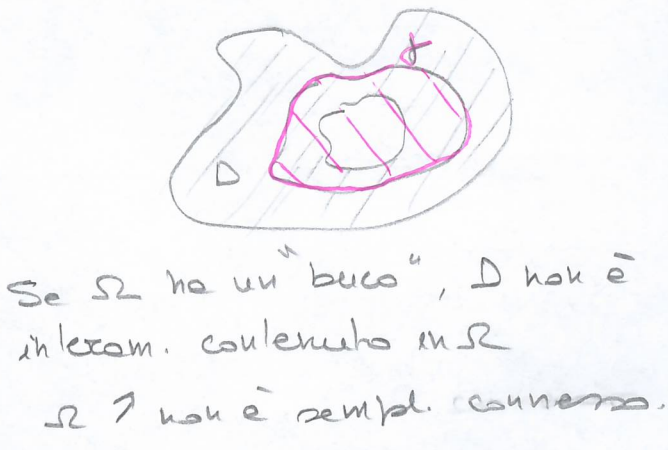 γ
D
Se Ω ha un "buco", D non è
interam. contenuto in Ω
Ω ↑ non è sempl. connesso.